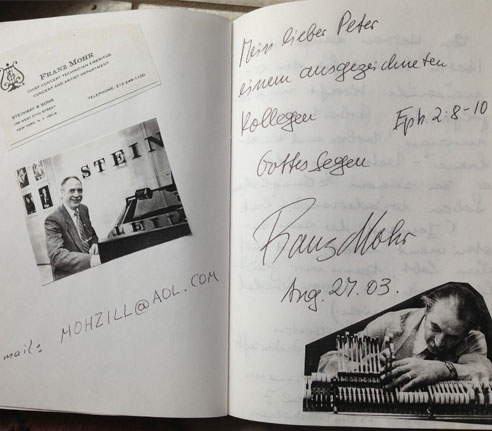 FRANZ MOHR
CHIEF CONCERT TECHNICIAN EMERITUS
CONCERT AND ARTIST DEPARTMENT
STEINWAY & SONS
109 WEST 57TH STREET
NEW YORK, N.Y. 10019
TELEPHONE:
STEIN
mail: MOHZILL@AOL.COM
Mein lieber Peter
einem ausgezeichneten
Kollegen
Eph 2:8-10
Gottes Segen
Franz Mohr
Aug. 27.03.